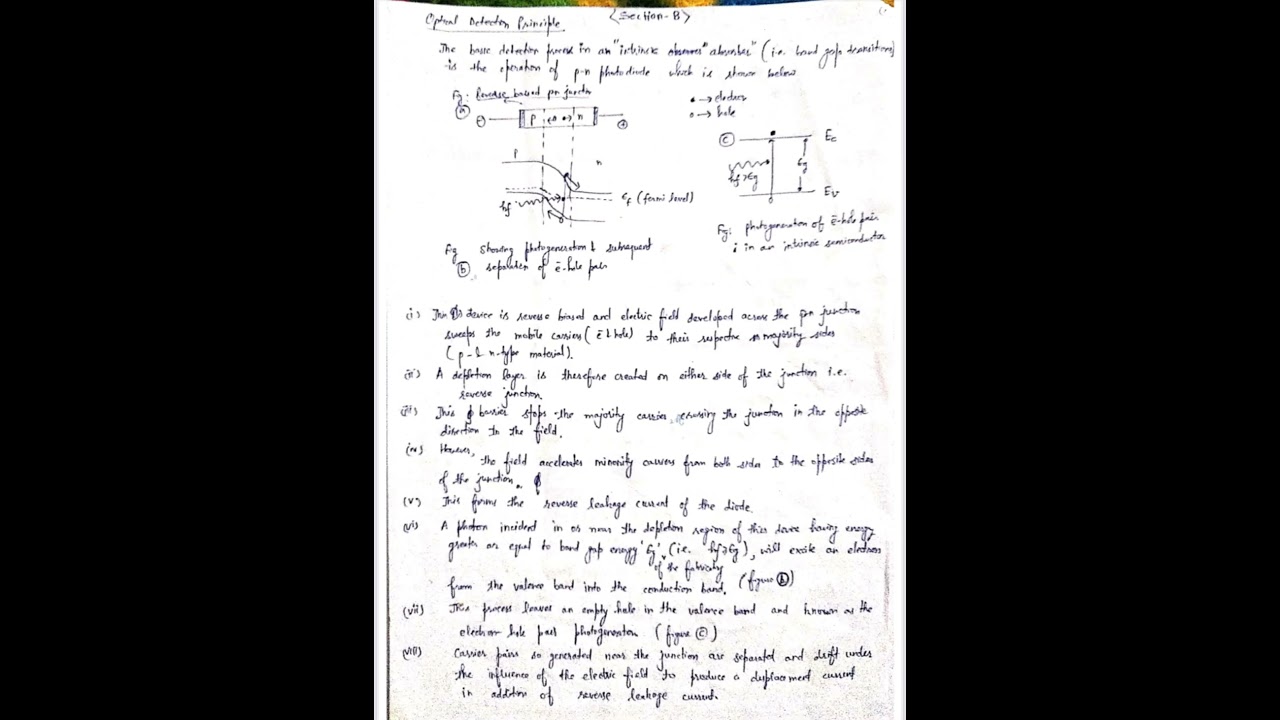 <Section-B>
Optical Detection Principle
The basic detection process in an "intrinsic absorber" (i.e. band gap transitions)
is the operation of p-n photodiode which is shown below
Fig: Reverse biased pn junction
(a)
• → electron
o → hole
p n
(c) Ec
p n
hf>Eg Eg
Ev
hf
Ef (fermi level)
Fig: photogeneration of ē-hole pair
in an intrinsic semiconductor
Fig Showing photogeneration & subsequent
(b) separation of ē-hole pair
(i) This device is reverse biased and electric field developed across the p-n junction
sweeps the mobile carriers (ē & hole) to their respective majority sides
(p- & n-type material).
(ii) A depletion layer is therefore created on either side of the junction i.e.
reverse junction.
(iii) This barrier stops the majority carrier crossing the junction in the opposite
direction to the field.
(iv) However,
the field accelerates minority carriers from both sides to the opposite sides
of the junction.
(v) This forms the reverse leakage current of the diode.
(vi) A photon incident in or near the depletion region of this device having energy
greater or equal to band gap energy 'Eg' (i.e. hf≥Eg), will excite an electron
of the
from the valence band into the conduction band. (figure (b))
(vii) This process leaves an empty hole in the valence band and known as the
electron-hole pair photogeneration (figure (c))
(viii) Carrier pairs so generated near the junction are separated and drift under
the influence of the electric field to produce a displacement current
in addition of reverse leakage current.